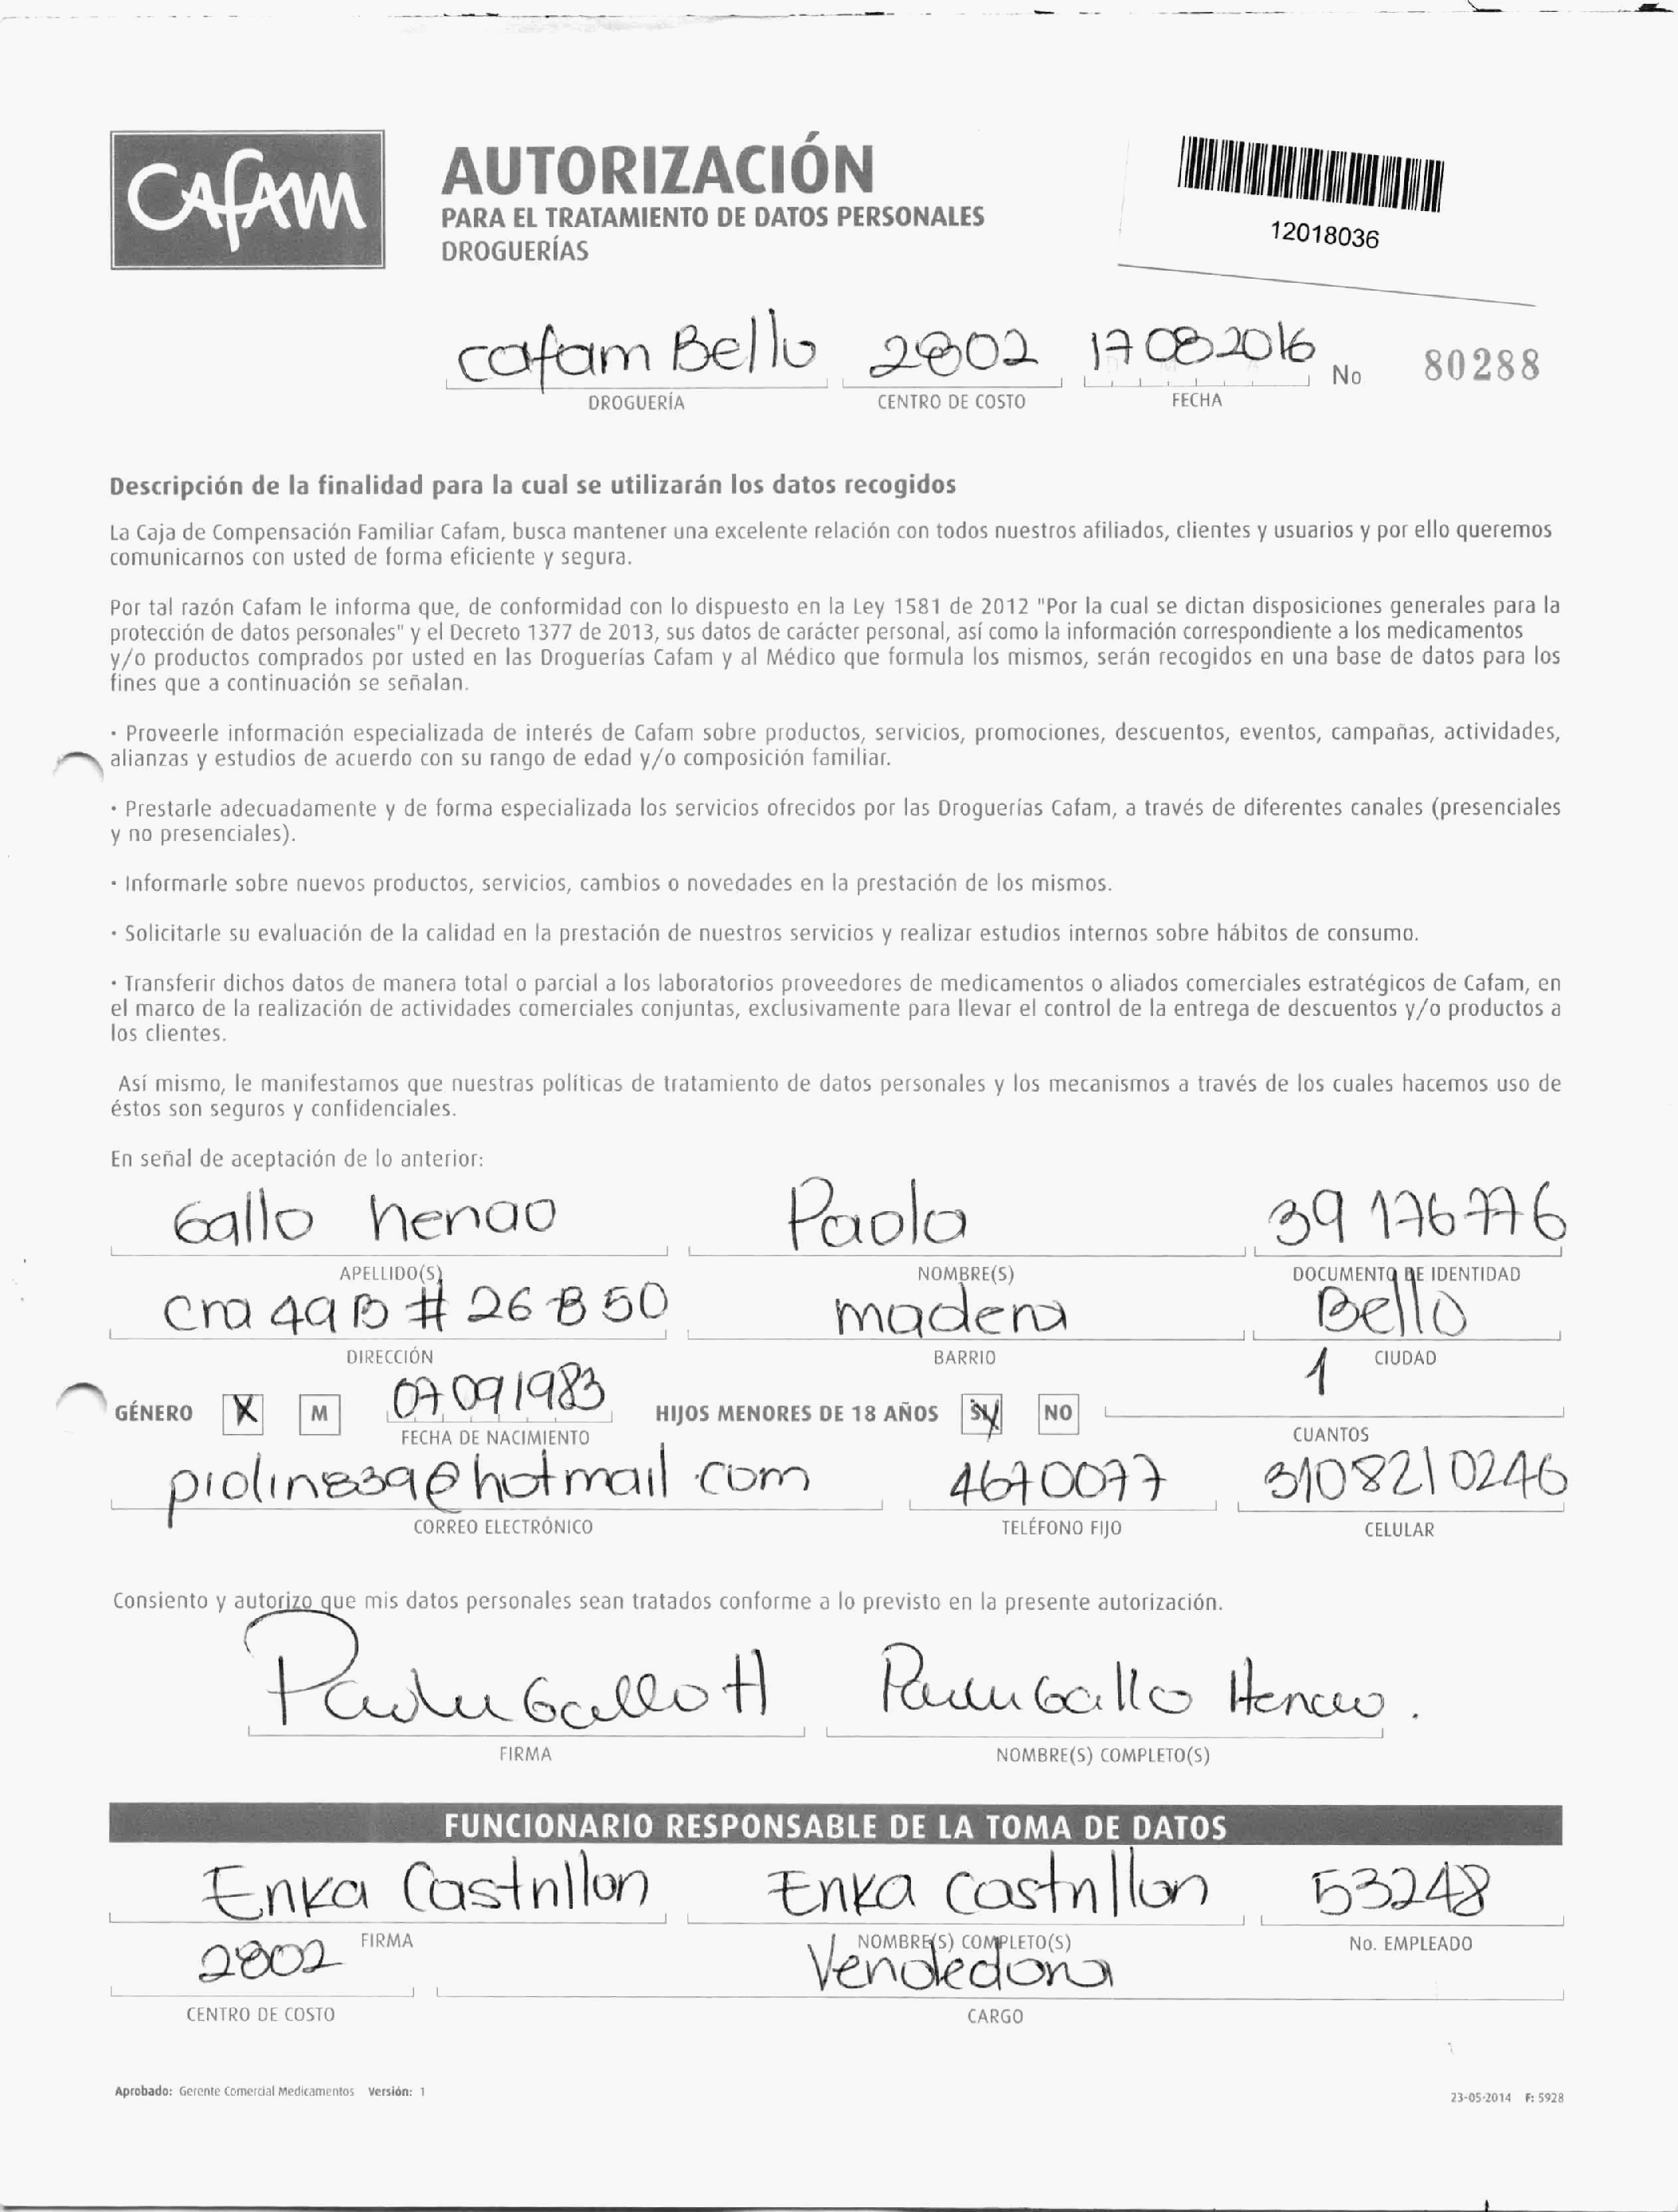 CAFAM
AUTORIZACIÓN
PARA EL TRATAMIENTO DE DATOS PERSONALES
DROGUERÍAS
12018036
cafam Bello 2802 17 08 2016 No 80288
DROGUERÍA CENTRO DE COSTO FECHA
Descripción de la finalidad para la cual se utilizarán los datos recogidos
La Caja de Compensación Familiar Cafam, busca mantener una excelente relación con todos nuestros afiliados, clientes y usuarios y por ello queremos
comunicarnos con usted de forma eficiente y segura.
Por tal razón Cafam le informa que, de conformidad con lo dispuesto en la Ley 1581 de 2012 "Por la cual se dictan disposiciones generales para la
protección de datos personales" y el Decreto 1377 de 2013, sus datos de carácter personal, así como la información correspondiente a los medicamentos
y/o productos comprados por usted en las Droguerías Cafam y al Médico que formula los mismos, serán recogidos en una base de datos para los
fines que a continuación se señalan.
· Proveerle información especializada de interés de Cafam sobre productos, servicios, promociones, descuentos, eventos, campañas, actividades,
alianzas y estudios de acuerdo con su rango de edad y/o composición familiar.
· Prestarle adecuadamente y de forma especializada los servicios ofrecidos por las Droguerías Cafam, a través de diferentes canales (presenciales
y no presenciales).
· Informarle sobre nuevos productos, servicios, cambios o novedades en la prestación de los mismos.
· Solicitarle su evaluación de la calidad en la prestación de nuestros servicios y realizar estudios internos sobre hábitos de consumo.
· Transferir dichos datos de manera total o parcial a los laboratorios proveedores de medicamentos o aliados comerciales estratégicos de Cafam, en
el marco de la realización de actividades comerciales conjuntas, exclusivamente para llevar el control de la entrega de descuentos y/o productos a
los clientes.
Así mismo, le manifestamos que nuestras políticas de tratamiento de datos personales y los mecanismos a través de los cuales hacemos uso de
éstos son seguros y confidenciales.
En señal de aceptación de lo anterior:
Gallo henao Paola 39 176776
APELLIDO(S) NOMBRE(S) DOCUMENTO DE IDENTIDAD
cra 49 B # 26 B 50 madera Bello
DIRECCIÓN BARRIO CIUDAD
GÉNERO X M 07 09 1983 HIJOS MENORES DE 18 AÑOS SI X NO 1
FECHA DE NACIMIENTO CUANTOS
@hotmail.com 4670077 3108210246
CORREO ELECTRÓNICO TELÉFONO FIJO CELULAR
Consiento y autorizo que mis datos personales sean tratados conforme a lo previsto en la presente autorización.
Paola Gallo H Paola Gallo Henao.
FIRMA NOMBRE(S) COMPLETO(S)
FUNCIONARIO RESPONSABLE DE LA TOMA DE DATOS
Erika Castrillon Erika Castrillon 53248
FIRMA NOMBRE(S) COMPLETO(S) No. EMPLEADO
2802 Vendedora
CENTRO DE COSTO CARGO
Aprobado: Gerente Comercial Medicamentos Versión: 1
23-05-2014 F: 5928